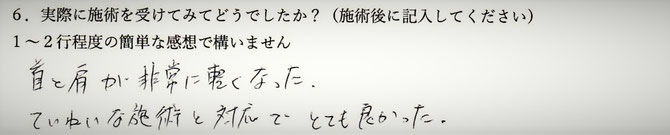 ６．実際に施術を受けてみてどうでしたか？（施術後に記入してください）
１～２行程度の簡単な感想で構いません
首と肩が非常に軽くなった.
ていねいな施術と対応でとても良かった.